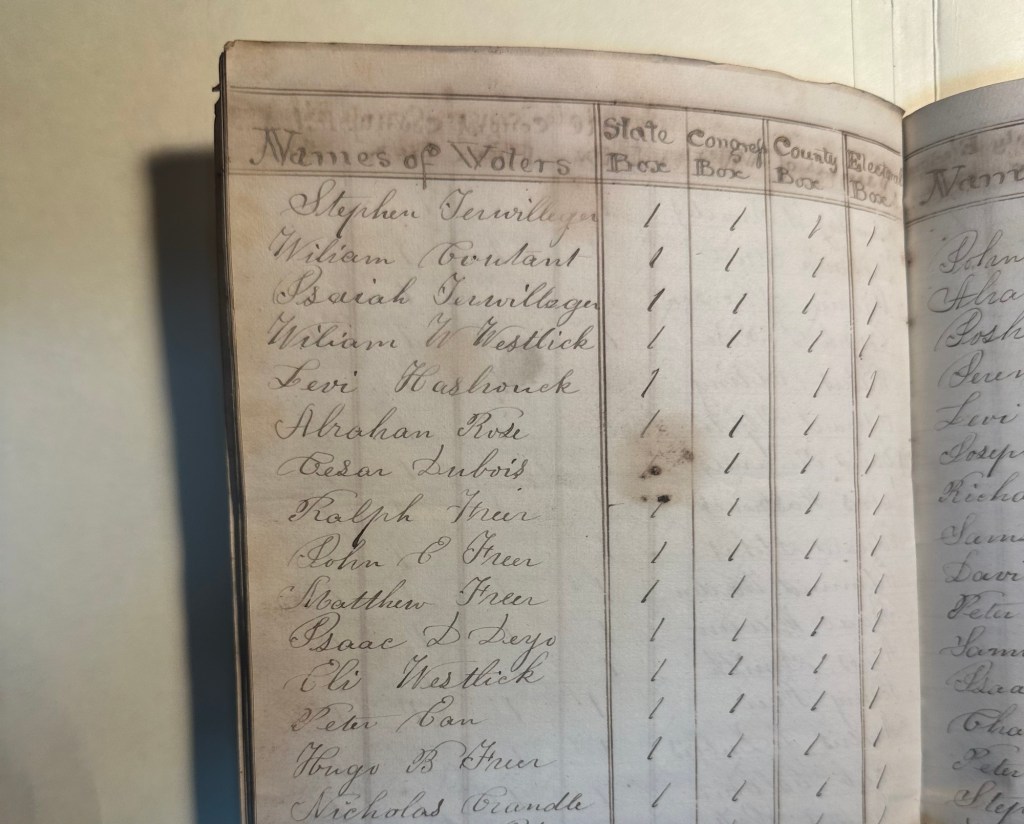 Names of Woters State Box Congress Box County Box Box
Stephen Terwilleger 1 1 1 1
Wiliam Coutant 1 1 1 1
Isaiah Terwillager 1 1 1 1
Wiliam W Westlick 1 1 1 1
Levi Hasbrouck 1 1 1
Abrahan Rose 1 1 1 1
Cesar Dubois 1 1 1
Ralph Freer 1 1 1 1
John E Freer 1 1 1 1
Matthew Freer 1 1 1 1
Isaac D Deyo 1 1 1 1
Eli Westlick 1 1 1 1
Peter Can 1 1 1 1
Hugo B Freer 1 1 1 1
Nicholas Crandle 1 1 1 1
John
Levi
Peter